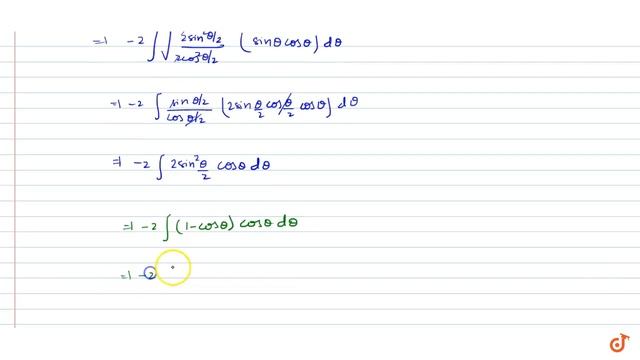 =1 -2 ∫ √ 2sin²θ/2 / 2cos²θ/2 (sinθcosθ) dθ
=1 -2 ∫ sinθ/2 / cosθ/2 (2sin θ/2 cos θ/2 cosθ) dθ
=1 -2 ∫ 2sin² θ/2 cosθ dθ
=1 -2 ∫ (1-cosθ) cosθ dθ
=1 -2